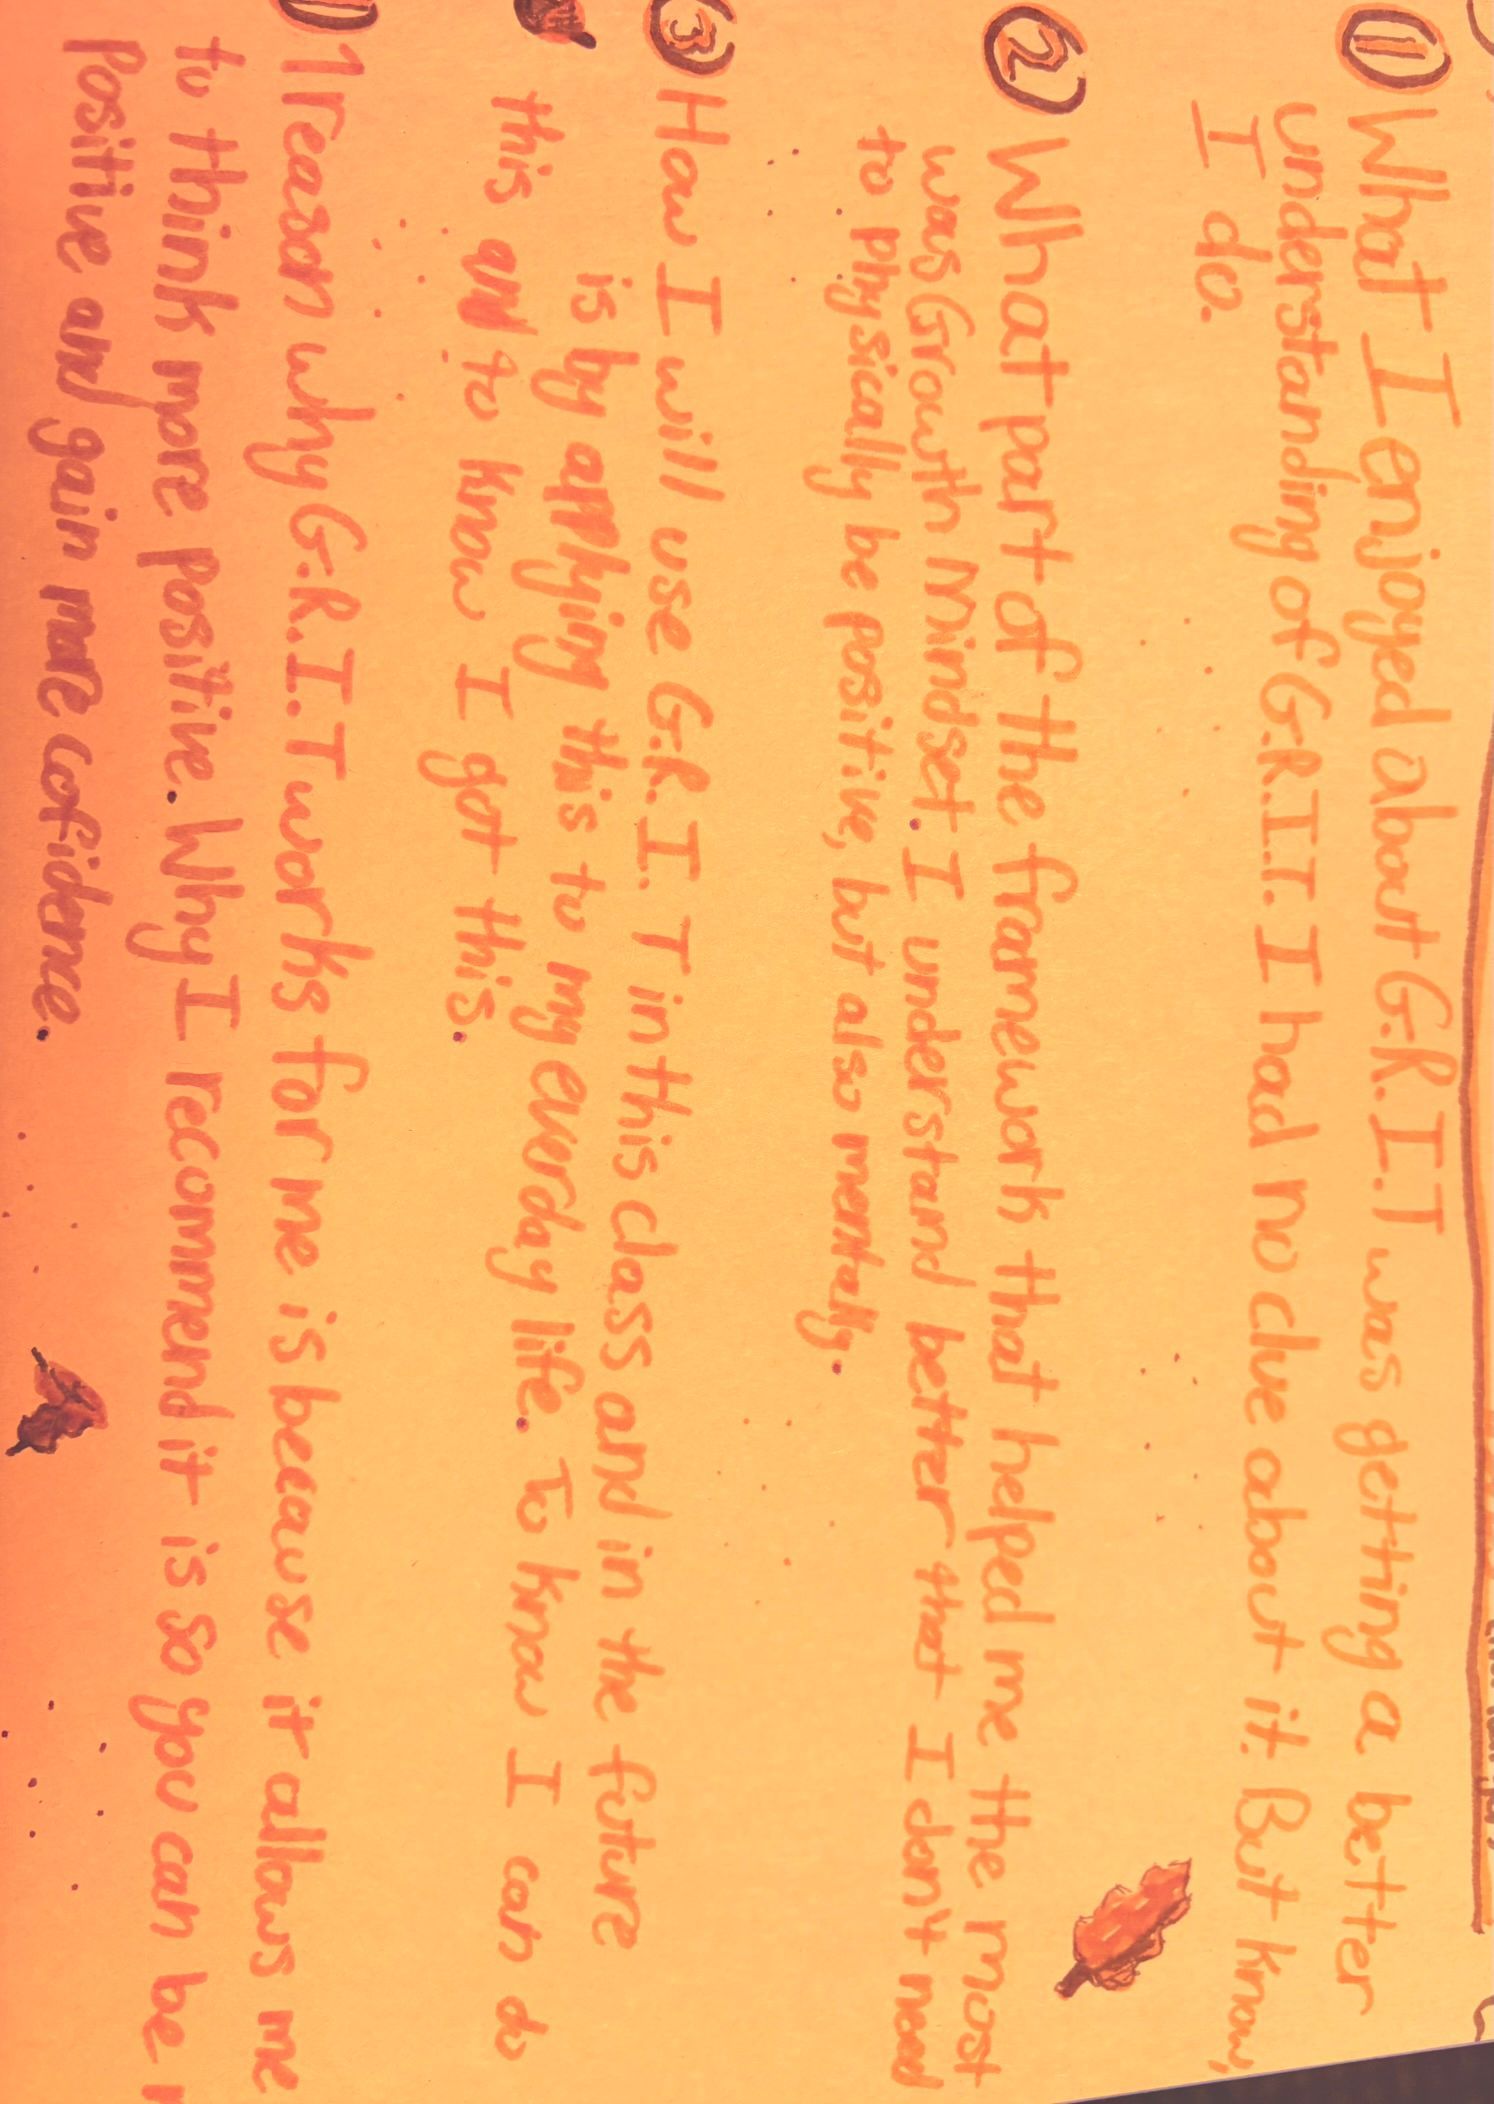 ① What I enjoyed about G.R.I.T was getting a better
understanding of G.R.I.T. I had no clue about it. But know,
I do.
② What part of the framework that helped me the most
was Growth Mindset. I understand better that I don't need
to physically be positive, but also mentally.
③ How I will use G.R.I.T in this class and in the future
is by applying this to my everyday life. To know I can do
this and to know I got this.
1 reason why G.R.I.T works for me is because it allows me
to think more positive. Why I recommend it is so you can be
positive and gain more cofidence.